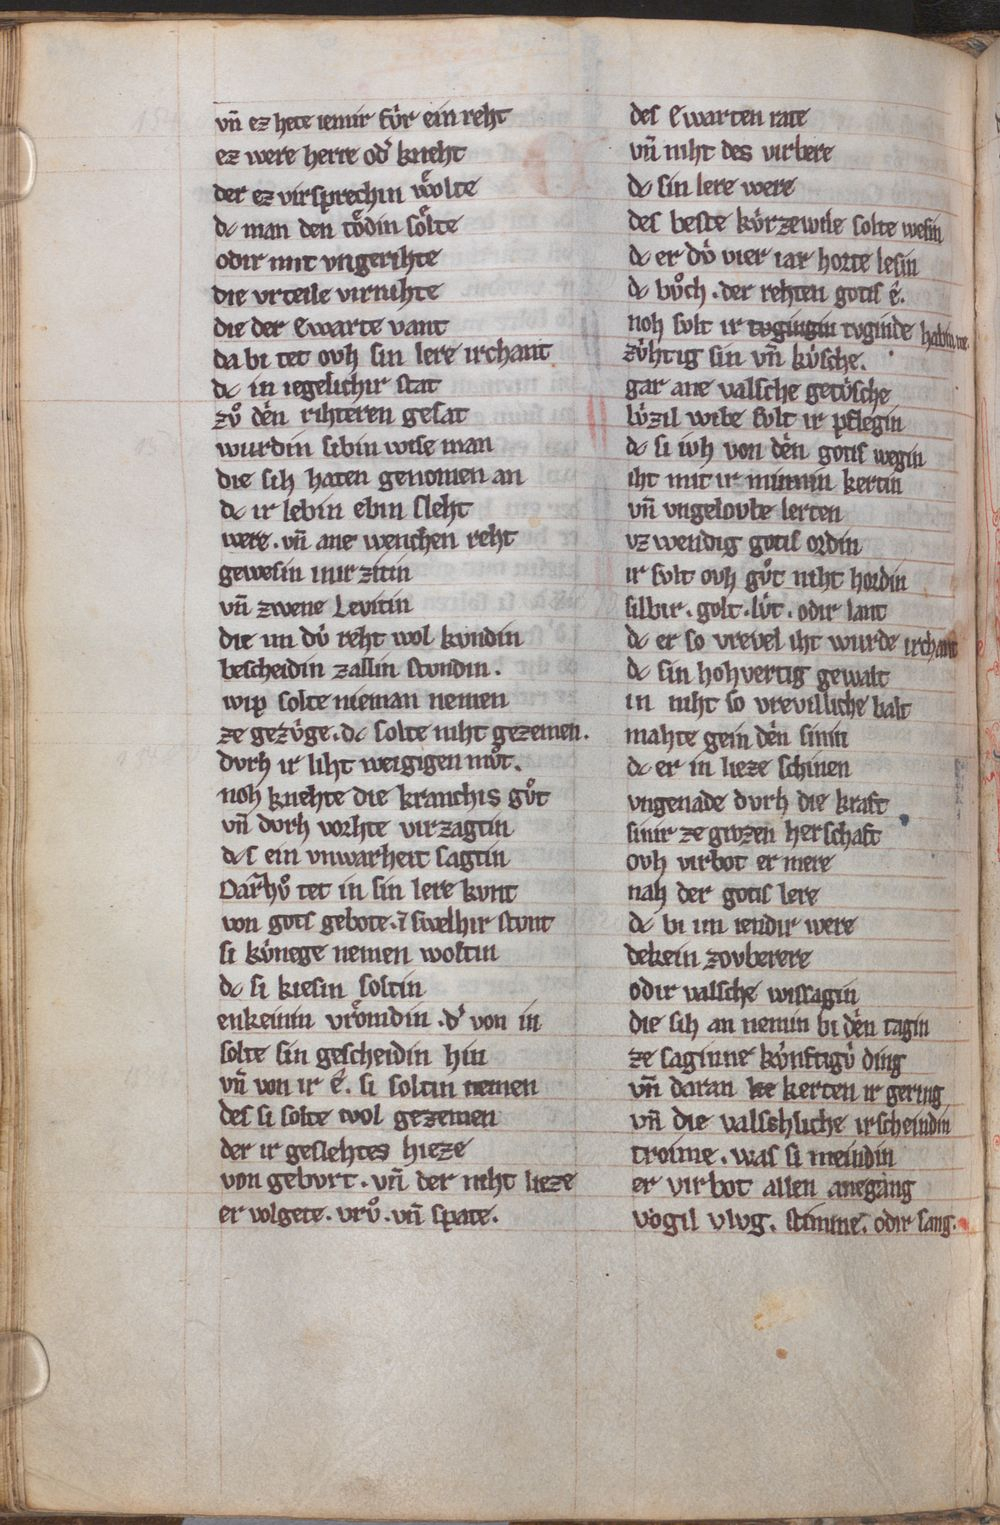 vn̄ ez hete iemir fv́r ein reht
ez were herre od͛ kneht
der ez virsprechin wôlte
dc man den tôdin sôlte
odir mit vngerihte
die vrteile virnihte
die der Ewarte vant
da bi tet ovh sin lere irchant
dc in iegelichir stat
zvͦ dên rihteren gesat
wurdin sibin wise man
die sih haten genomen an
dc ir lebin ebin sleht
were. vn̄ ane wenchen reht
gewesin inir zitin
vn̄ zwene Levitin
die im dv́ reht wol kvndin
bescheidin zallin stvndin.
wip solte nieman nemen
ze gezv́ge. dc solte niht gezemen.
dvrh ir liht weigigen mvͦt.
noh knehte die kranchis gvͦt
vn̄ dvrh vorhte virzagtin
des ein vnwarheit sagtin
Darzvͦ tet in sin lere kvnt
von gotis gebote. ī swelhir stvnt
si kv́nege nemen woltin
dc si kiesin soltin
enkeinin vrômdin. d͛ von in
solte sin gescheidin hin
vn̄ von ir ê. si soltin nemen
des si solte wol gezemen
der ir geslehtes hieze
von gebvrt. vn̄ der niht lieze
er volgete. vrvͦ. vn̄ spate.
des Ewarten rate
vn̄ niht des virbere
dc sin lere were
des beste kv́rzewile solte wesin
dc er dv́ vier iar horte lesin
dc bvͦch. der rehten gotis ê.
noh svlt ir tvgingin tvginde habin me.
zv́htig sin vn̄ kv́sche.
gar ane valsche getv́sche
lv́zil wibe svlt ir pflegin
dc si iwh von dên gotis wegin
iht mit ir minnin kertin
vn̄ vngelovbe lerten
vzwendig gotis ordin
ir svlt ovh gvͦt niht hordin
silbir. golt. lv́t. odir lant
dc er so vrevel iht wurde irchant
dc sin hohvertig gewalt
in niht so vrevilliche balt
mahte gein dên sinin
dc er in lieze schinen
vngenade dvrh die kraft
sinir ze grozen herschaft
ovh virbot er mere
nah der gotis lere
dc bi im iendir were
dekein zovberere
odir valsche wissagin
die sih an nemin bi dên tagin
ze saginne kv́nftigv́ ding
vn̄ daran ke kerten ir gering
vn̄ die valschliche irscheindin
troime. was si meindin
er virbot allen anegang
vogil vlvg. stimme. odir sang.